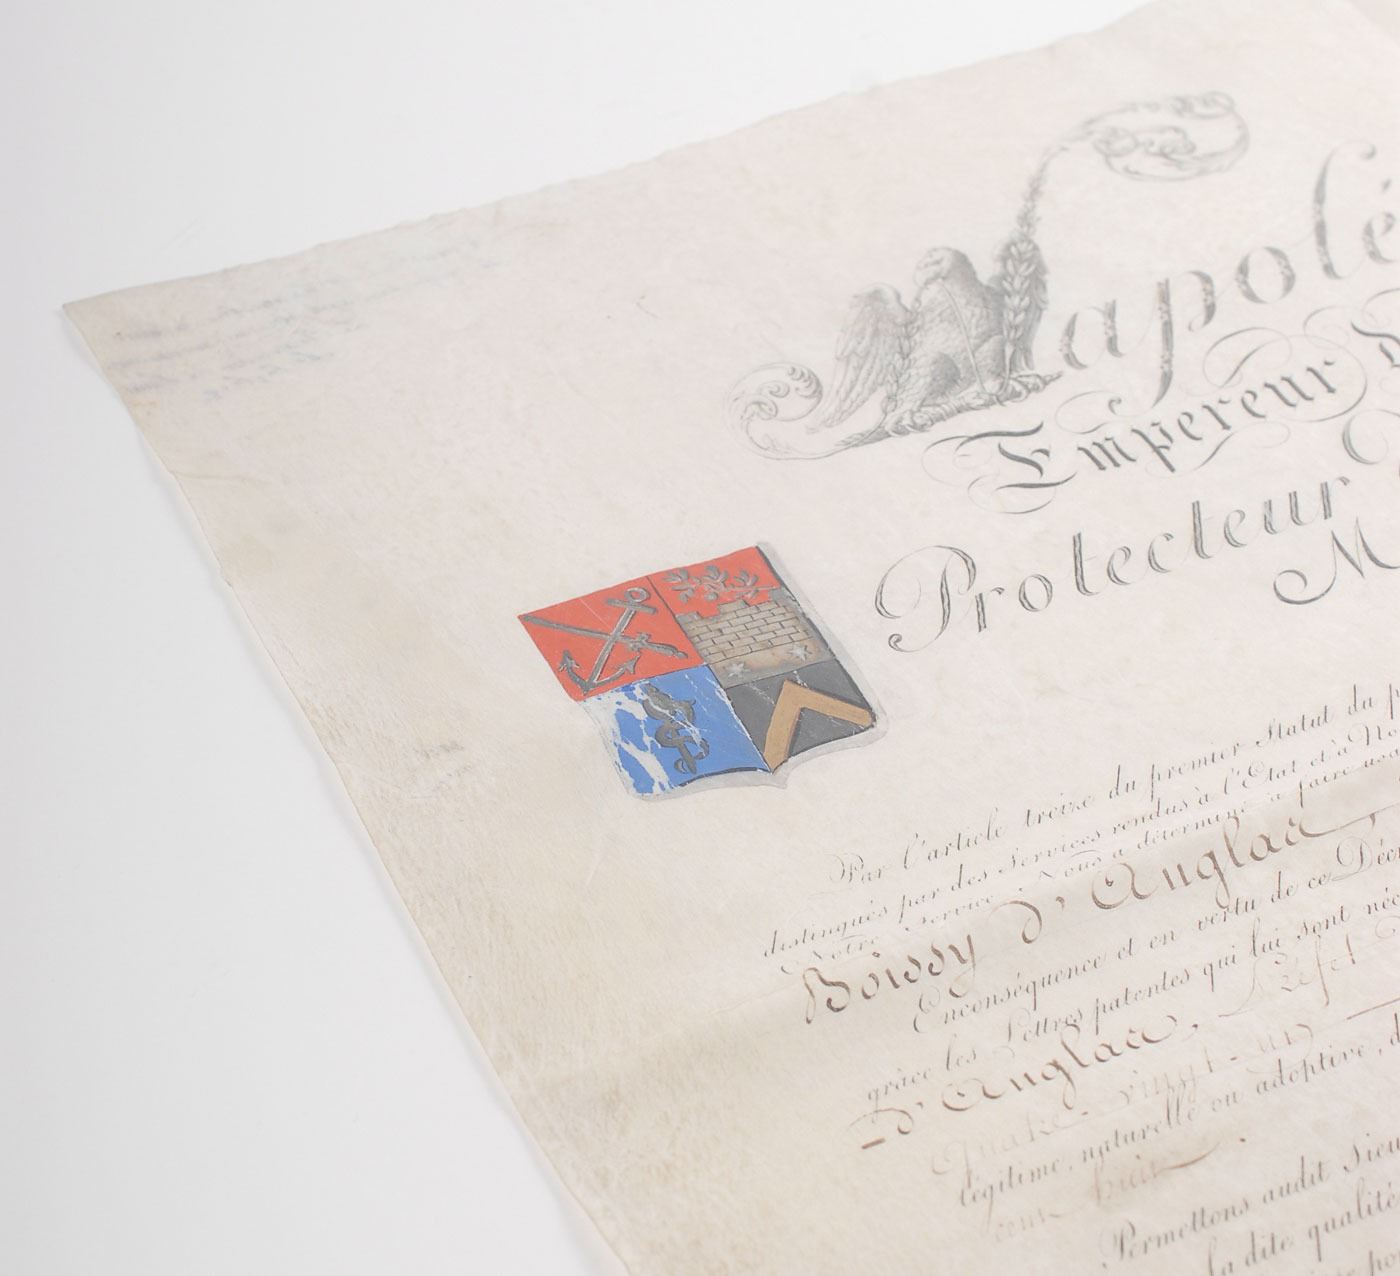 Napolé
Empereur d
Protecteur
M
Par l'article treize du premier Statut du p
distingués par des Services rendus à l'Etat et à No
Notre Service, Nous a déterminé à faire usa
Boissy d'Anglas,
Enconséquence et en vertu de ce Décr
grâce les Lettres patentes qui lui sont néc
d'Anglas,
quatre-vingt-un
légitime, naturelle ou adoptive, d
Permettons audit Sieu
la dite qualité